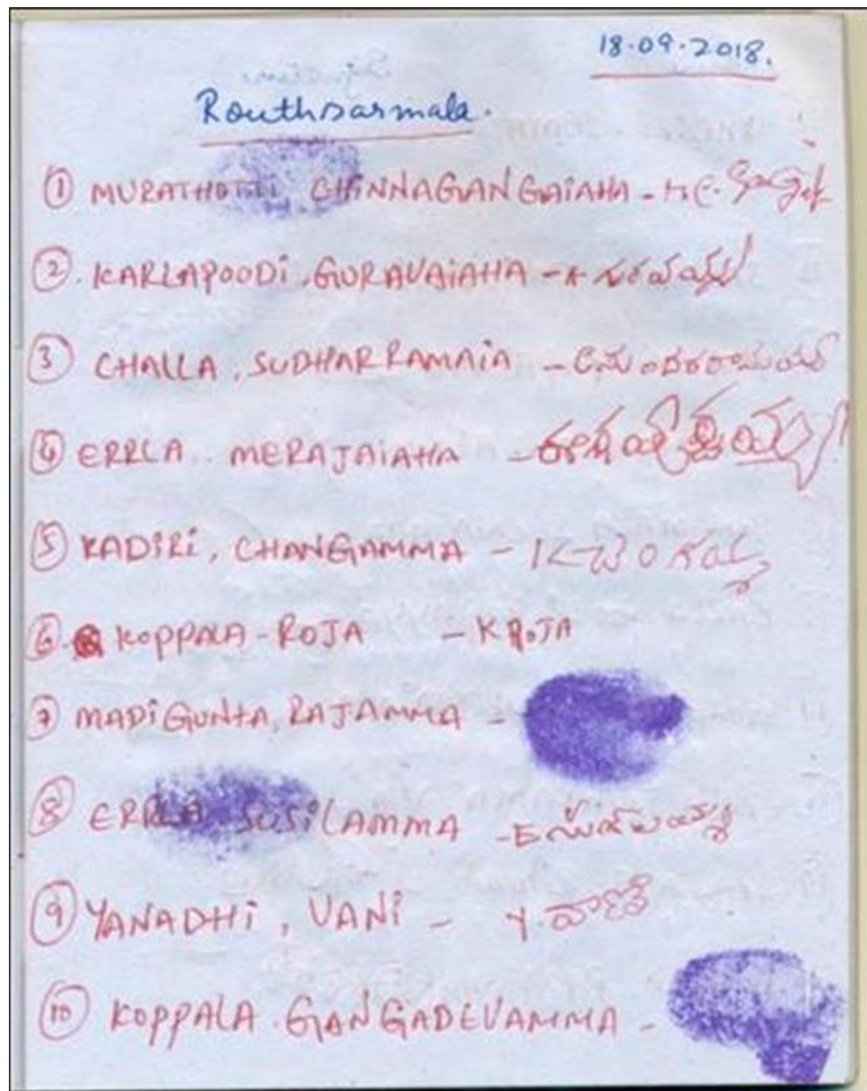 18.09.2018.
Routhsarmala.
① MURATHOTTI CHINNAGANGAIAHA -
②. KARLAPOODi, GURAVAIAHA - K గురవయ్య
③ CHALLA, SUDHARRAMAIA -
④ ERRLA.. MERAJAIAHA -
⑤ KADIRI, CHANGAMMA - K చెంగమ్మ
⑥. KOPPALA - ROJA - K ROJA
⑦ MADiGUNTA, RAJAMMA -
⑧ ERRLA SUSiLAMMA - E
⑨ YANADHi, VANi - Y. వాణి
⑩ KOPPALA. GANGADEVAMMA -